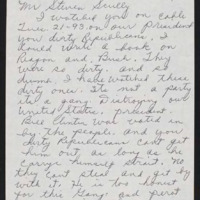 Mr Steven Scully
I watched you on cable
Tues. 21-93 on our President
You dirty Republicans. I
could write a book on
Reagon and Bush. They
were so dirty, and so
dumb. I have watched these
dirty ones. Its not a party
its a gang Distroying our
United States, president.
Bill Clinton was voted in
by the people, and you
dirty Republicans cant get
him out as long as he
carrys himself strait. No
they cant steal and get by
with it. He is too honest
for this Gang and